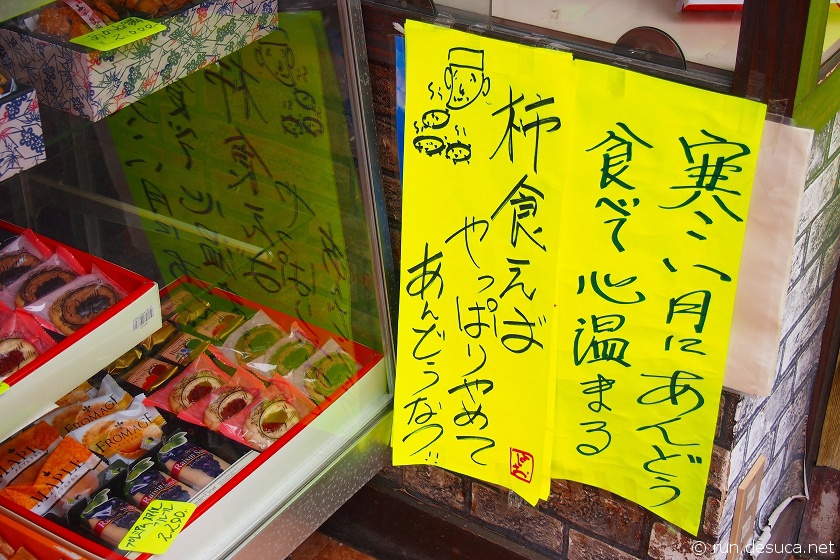 寒こい月にあんどう
食べて心温まる
柿食えば
やっぱりやめて
あんどうなつ!!
FROMAGE
FROMAGE
MAPLE
2200
© run.desuca.net